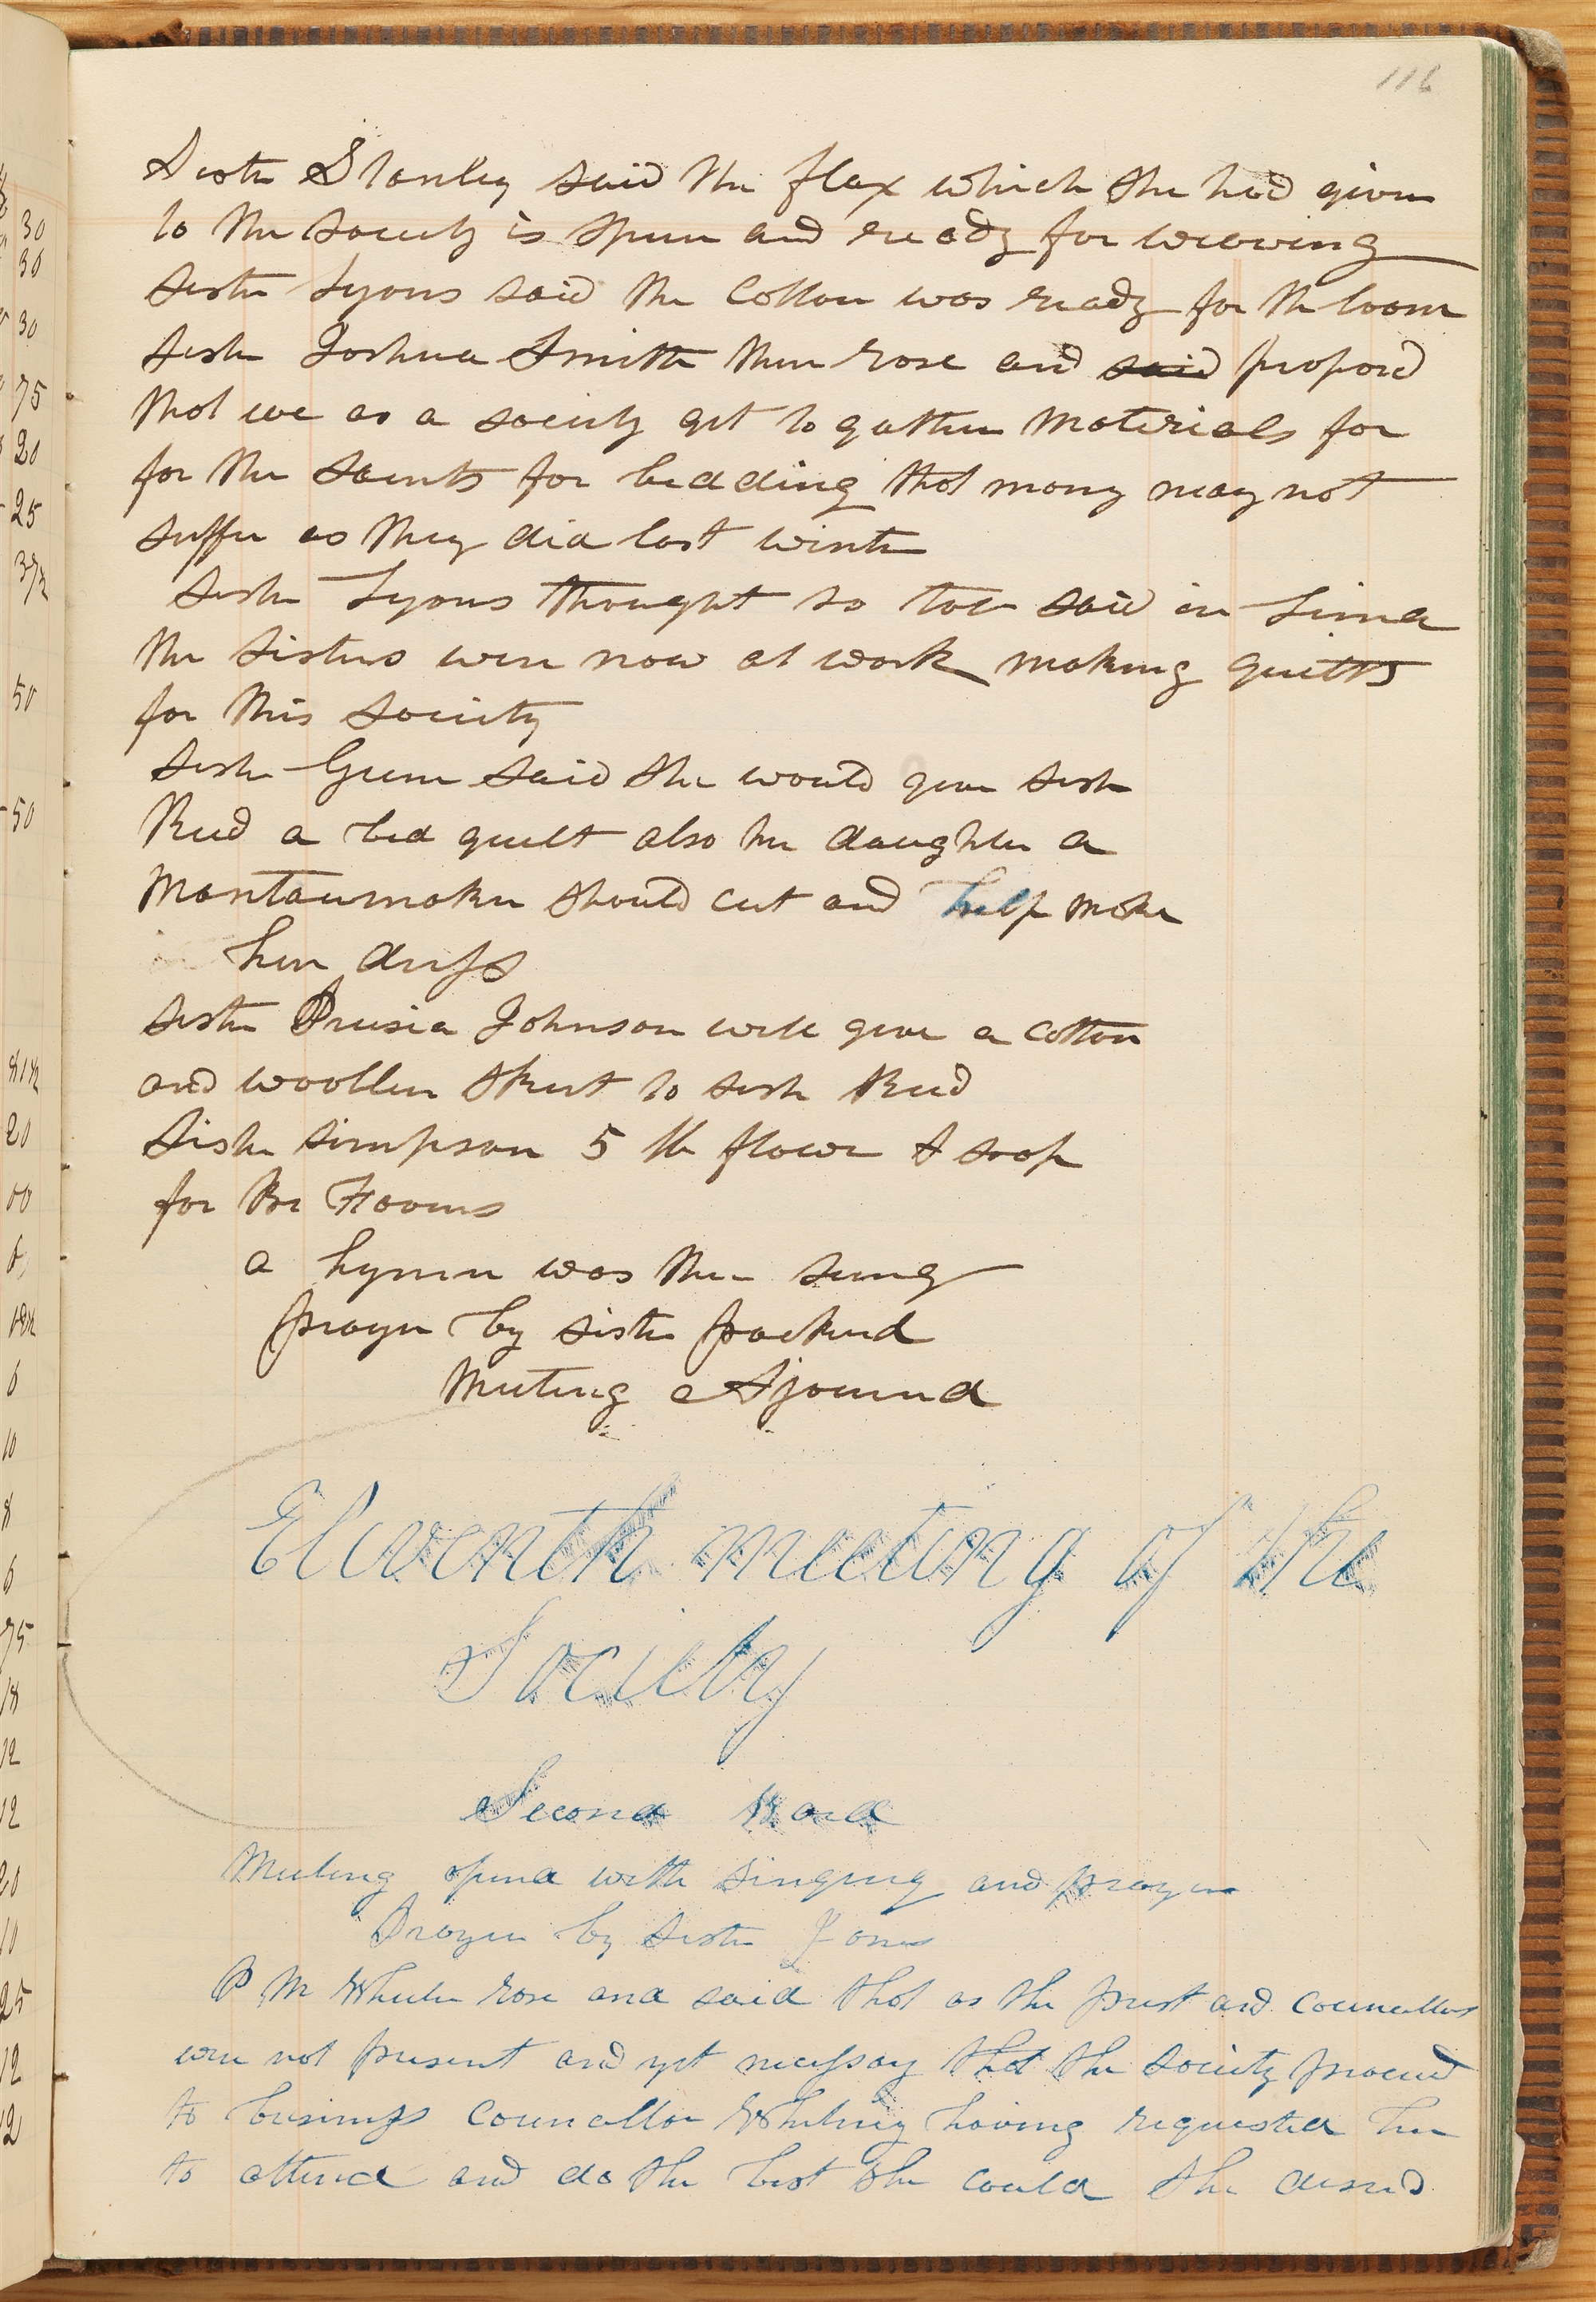 116
Sister Stanley said the flax which she had given
to the Society is spun and ready for weaving
Sister Lyons said the Cotton was ready for th loom
Sister Joshua Smith then rose and said propos'd
that we as a society get to gather materials for
for the Saints for bedding that many may not
suffer as they did last winter
Sister Lyons thought so too said in Lima
the sisters were now at work making quilts
for this Society
Sister Green said she would give Sister
Reed a bed quilt also her daughter a
Mantaumaker should cut and help make
her dress
Sister Drusia Johnson will give a cotton
and woollen skirt to sister Reed
Sister Simpson 5 lb flour & soap
for Br
a hymn was then sung
prayer by sister packerd
Meeting Adjournd
Eleventh meeting of the
Society
Second Ward
Meeting opend with singing and prayer
Prayer by Sister Jones
P M Wheeler rose and said that as the prest and Councellors
were not present and yet necessary that the Society proceed
to business Councellor Whitney having requested her
to attend and do the best she could she desired
30
30
30
75
20
25
37½
50
50
81½
20
00
18½
6
10
8
6
75
18
12
12
20
10
25
12
12